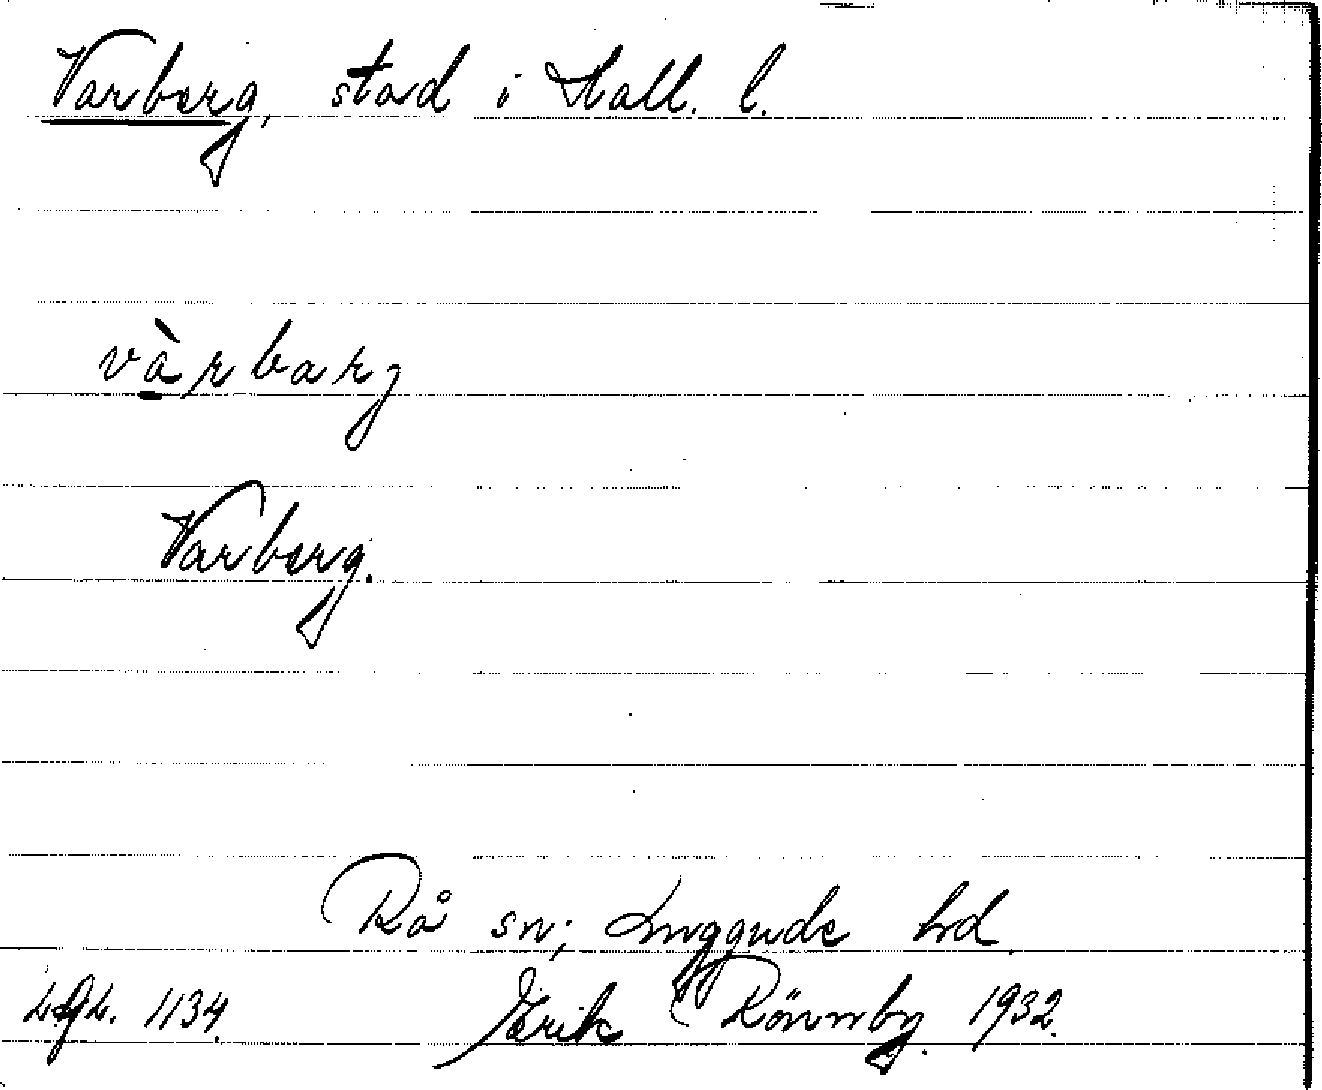 Varberg, stad i Hall. l.
vàrbarg
Varberg.
Rå sn; Luggude hd.
1134. Erik Rönnby. 1932.